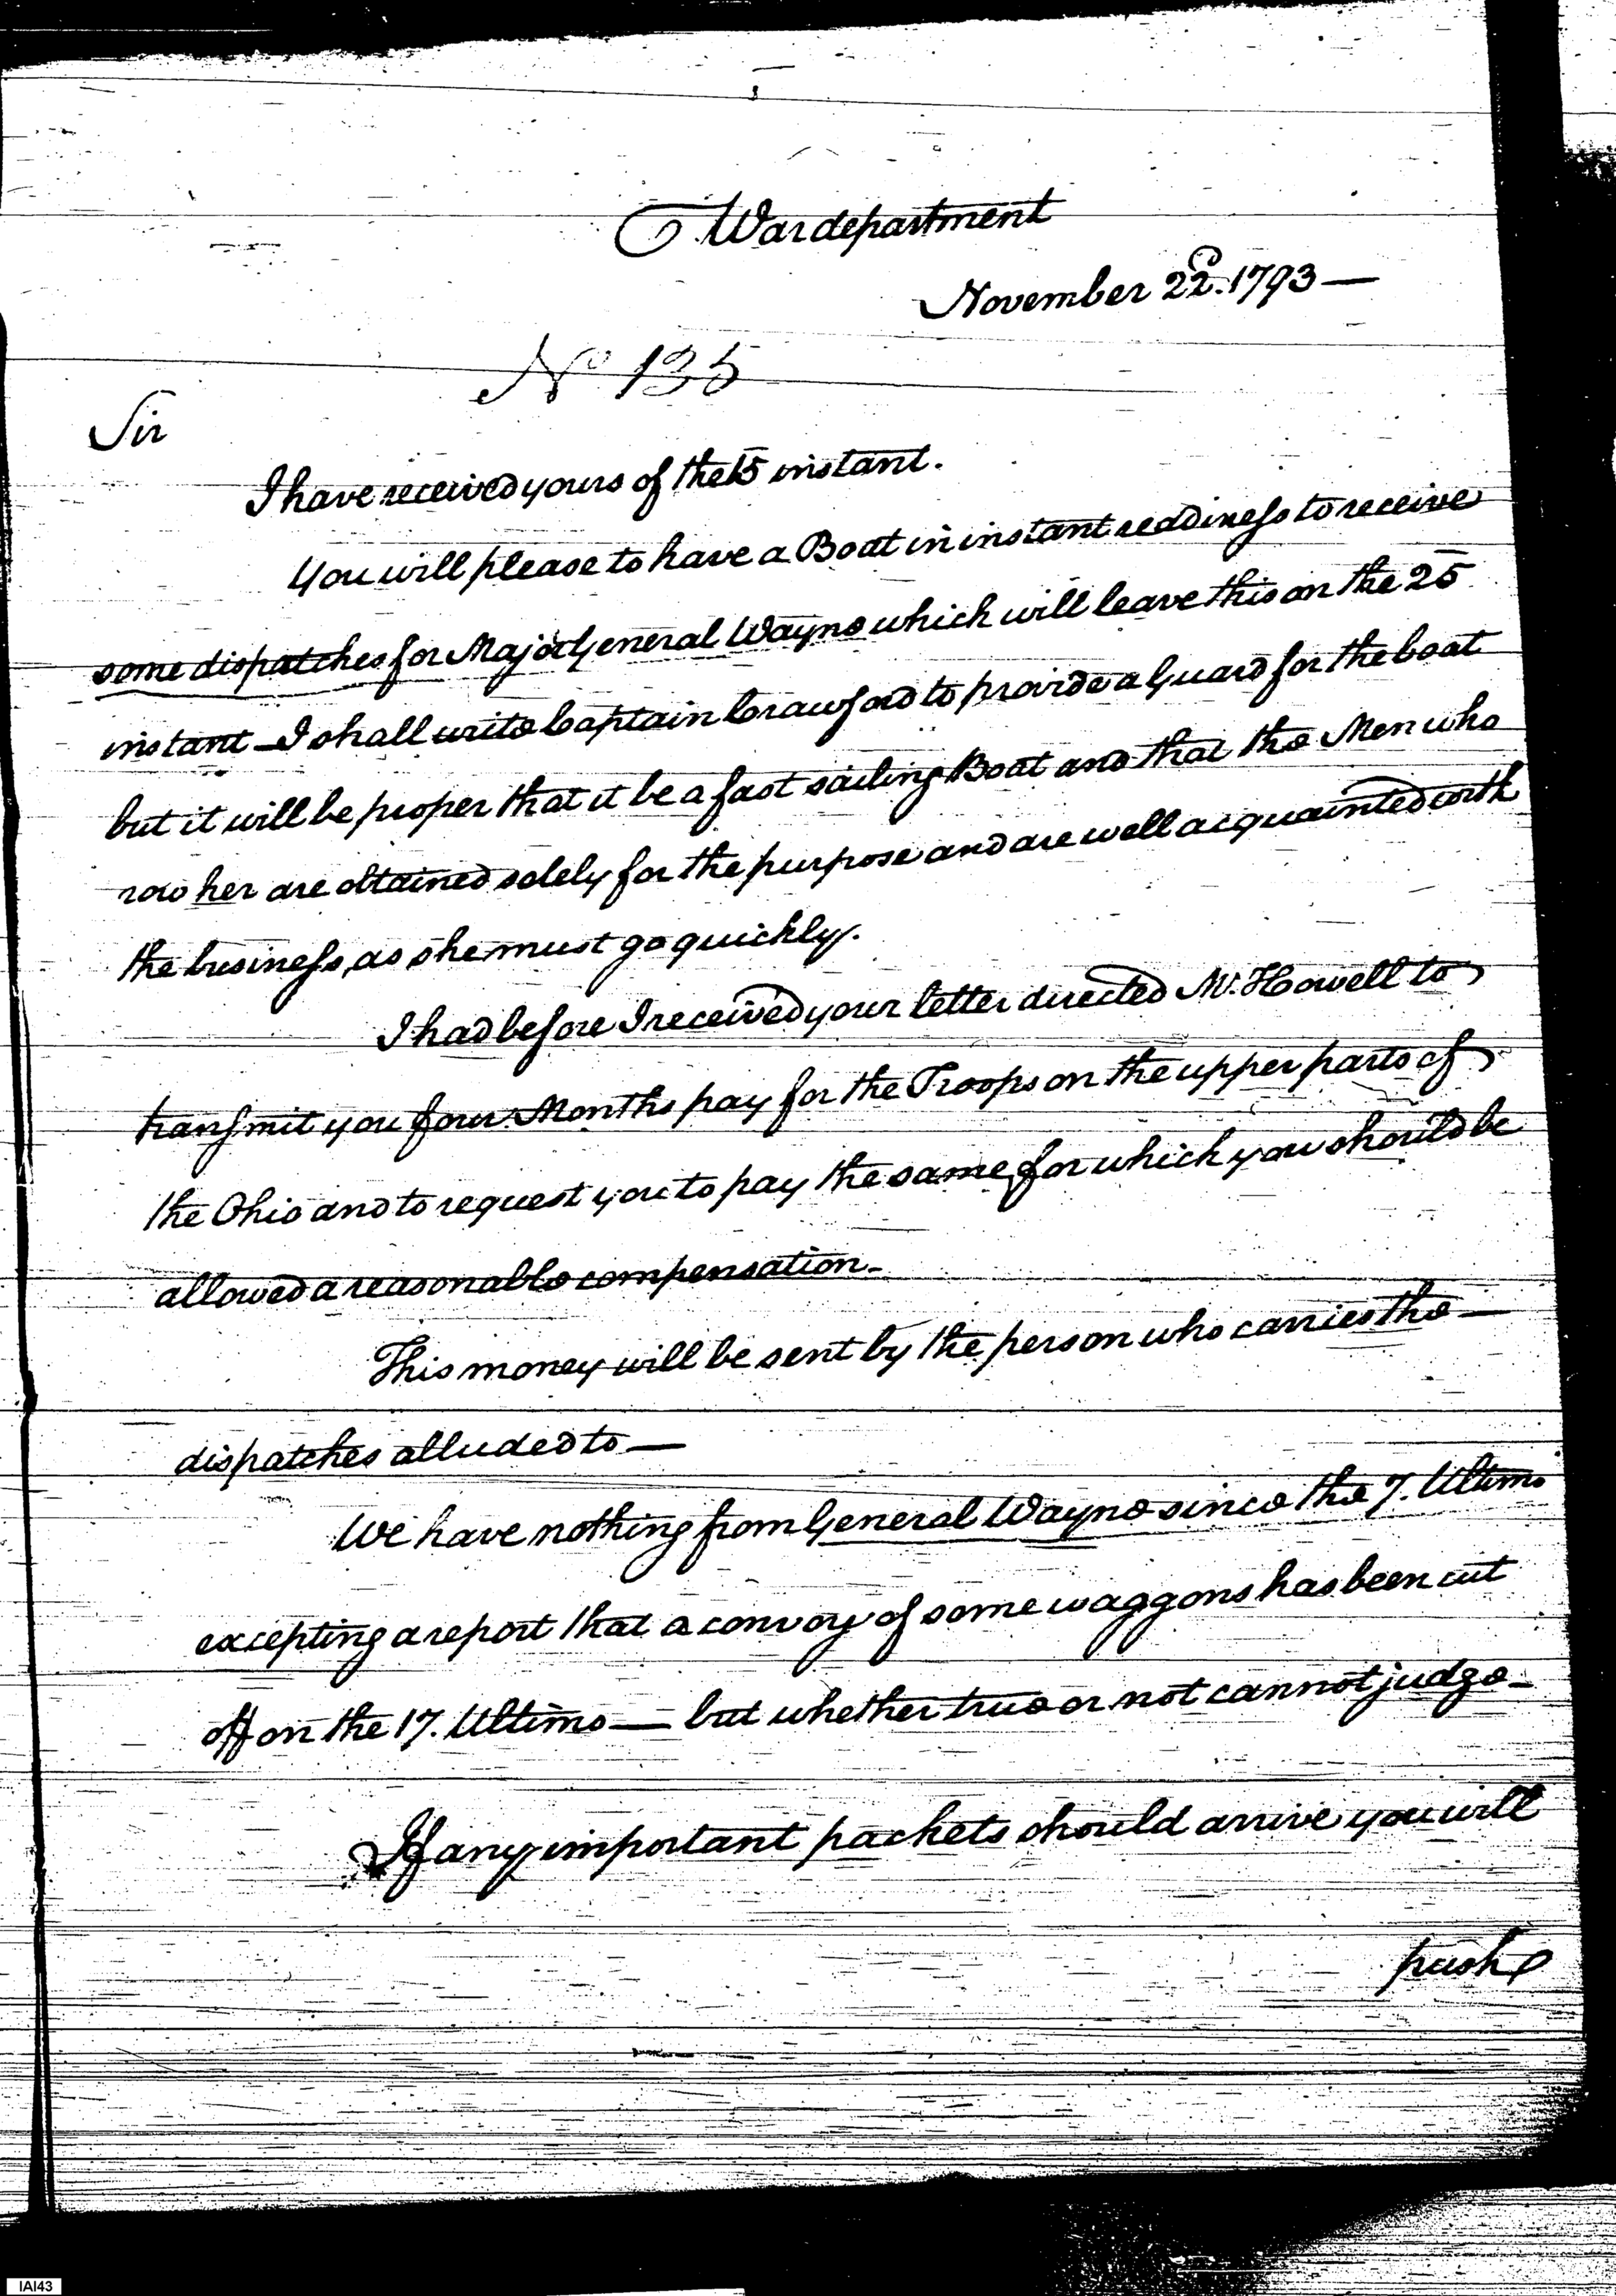 War department
November 22d. 1793 —
No 135
Sir
I have received yours of the 15 instant.
You will please to have a Boat in instant readiness to receive
some dispatches for Major General Wayne which will leave this on the 25
instant — I shall write Captain Crawford to provide a Guard for the boat
but it will be proper that it be a fast sailing Boat and that the Men who
row her are obtained solely for the purpose and are well acquainted with
the business, as she must go quickly.
I had before I received your letter directed Mr. Howell to
transmit you four Months pay for the Troops on the upper parts of
the Ohio and to request you to pay the same, for which you should be
allowed a reasonable compensation –
This money will be sent by the person who carries the —
dispatches alluded to —
We have nothing from General Wayne since the 7. Ultimo
excepting a report that a convoy of some waggons has been cut
off on the 17. Ultimo — but whether true or not cannot judge –
If any important packets should arrive you will
push
IAI43